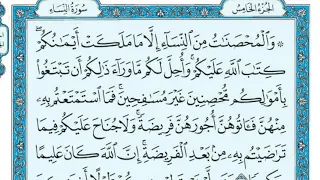 الجزء الخامس سورة النساء
۞ وَالْمُحْصَنَاتُ مِنَ النِّسَاءِ إِلَّا مَا مَلَكَتْ أَيْمَانُكُمْ
كِتَابَ اللَّهِ عَلَيْكُمْ وَأُحِلَّ لَكُم مَّا وَرَاءَ ذَٰلِكُمْ أَن تَبْتَغُوا
بِأَمْوَالِكُم مُّحْصِنِينَ غَيْرَ مُسَافِحِينَ فَمَا اسْتَمْتَعْتُم بِهِ
مِنْهُنَّ فَآتُوهُنَّ أُجُورَهُنَّ فَرِيضَةً وَلَا جُنَاحَ عَلَيْكُمْ فِيمَا
تَرَاضَيْتُم بِهِ مِن بَعْدِ الْفَرِيضَةِ إِنَّ اللَّهَ كَانَ عَلِيمًا